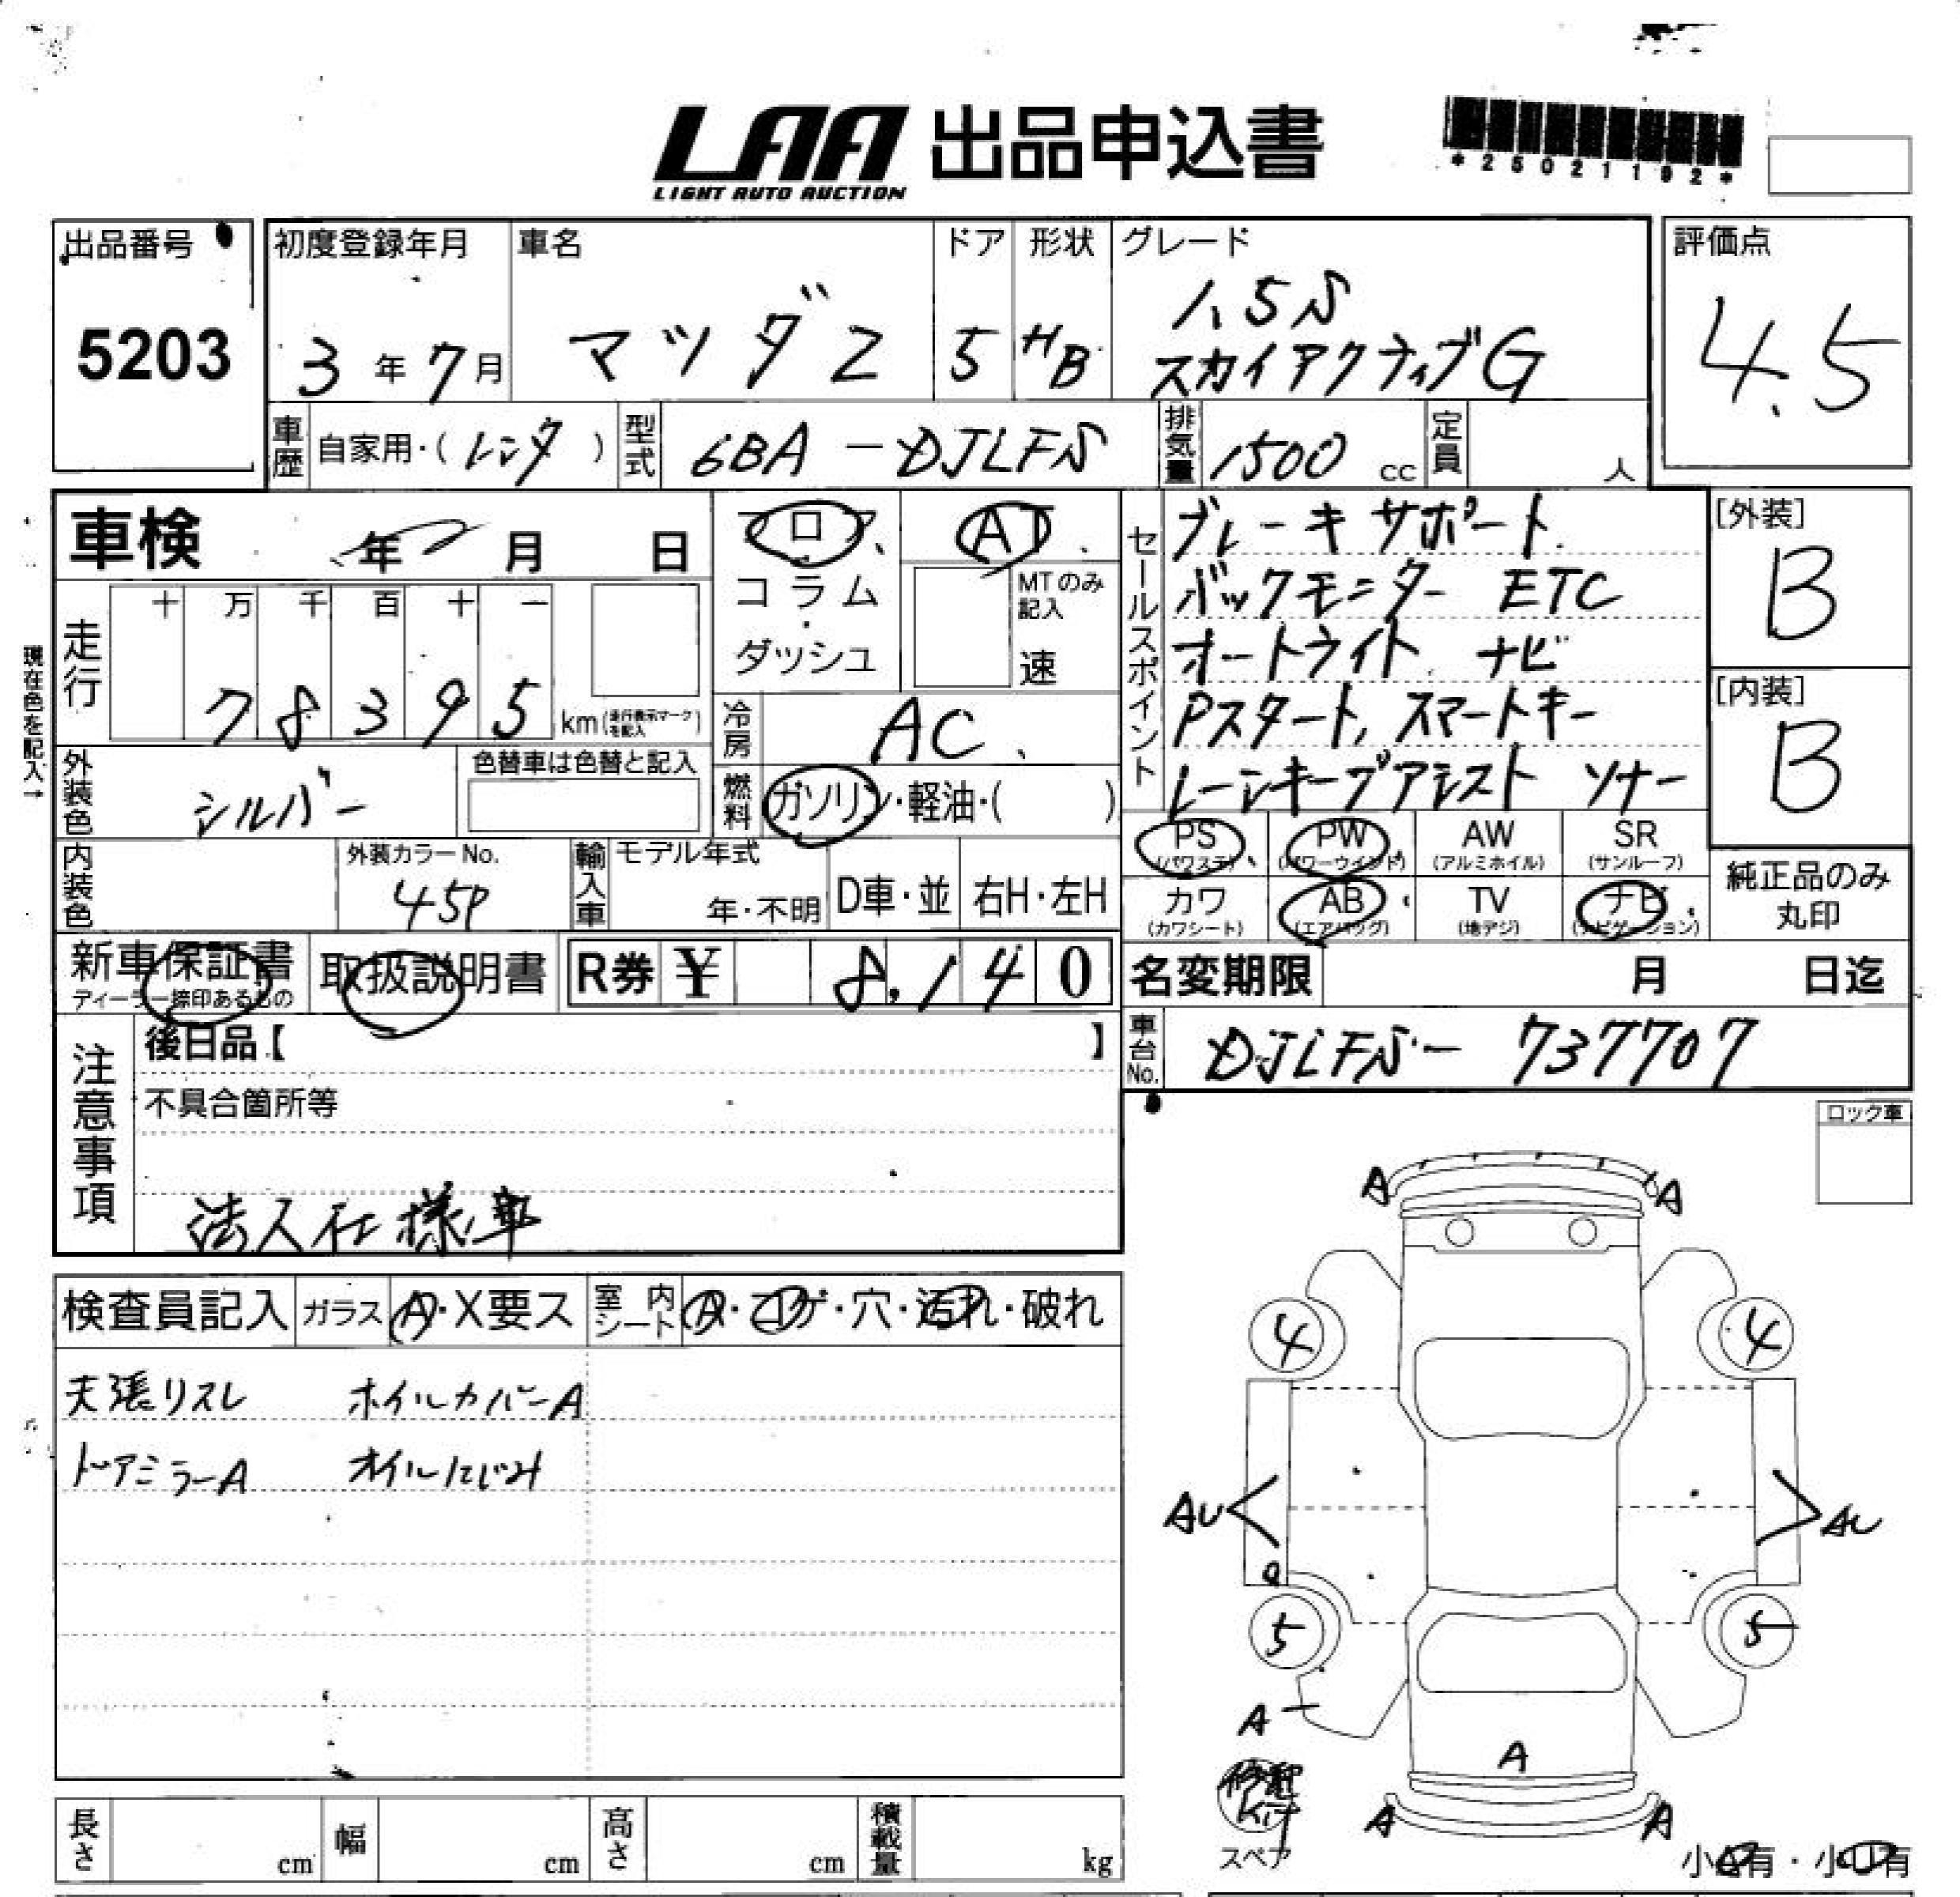 LAA 出品申込書
LIGHT AUTO AUCTION
*25021192*
出品番号
5203
初度登録年月
3年7月
車名
マツダ2
ドア
5
形状
HB
グレード
1.5S
スカイアクティブG
評価点
4.5
車歴 自家用・(レンタ)
型式 6BA-DJLFS
排気量 1500cc
定員 人
車検 年 月 日
フロア AT
コラム
ダッシュ
MTのみ記入
速
走行
十 万 千 百 十 一
7 8 3 9 5 km (走行表示マークを記入)
現在色を記入→
外装色 シルバー
色替車は色替と記入
冷房 AC
燃料 ガソリン・軽油・( )
セールスポイント
ブレーキサポート
バックモニター ETC
オートライト ナビ
Pスタート, スマートキー
レーンキープアシスト ソナー
[外装]
B
[内装]
B
内装色
外装カラーNo.
45P
輸入車
モデル年式
年・不明
D車・並
右H・左H
PS (パワステ)
PW (パワーウインド)
AW (アルミホイル)
SR (サンルーフ)
カワ (カワシート)
AB (エアバッグ)
TV (地デジ)
ナビ (ナビゲーション)
純正品のみ
丸印
新車保証書
ディーラー捺印あるもの
取扱説明書
R券 ¥ 8,140
名変期限 月 日迄
車台No. DJLFS-737707
注意事項
後日品【 】
不具合箇所等
法人仕様車
ロック車
検査員記入
ガラス A・X要ス
室内シート A・コゲ・穴・汚れ・破れ
天張リスレ ホイルカバーA
ドアミラーA オイルにじみ
A A
4 4
AU AU
5 5
A
A
A A
Kit
スペア
長さ cm
幅 cm
高さ cm
積載量 kg